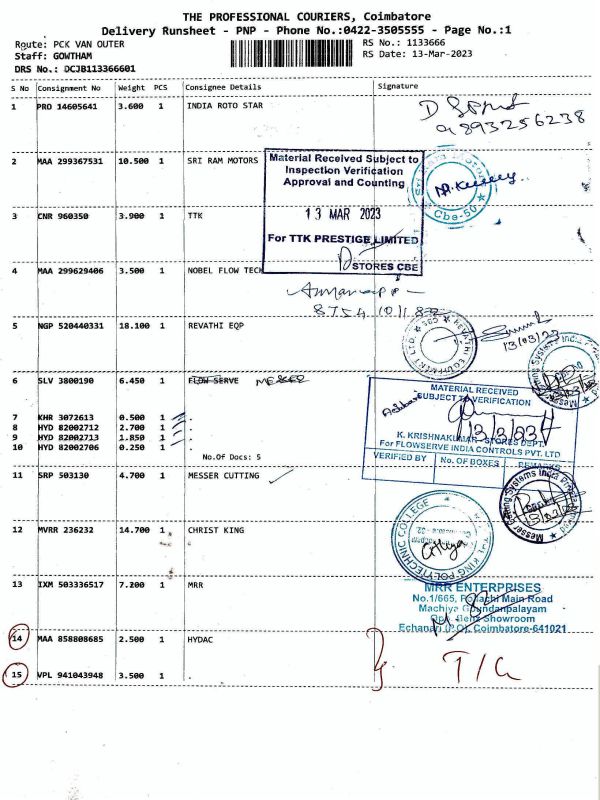 THE PROFESSIONAL COURIERS, Coimbatore
Delivery Runsheet - PNP - Phone No.:0422-3505555 - Page No.:1
Route: PCK VAN OUTER RS No.: 1133666
Staff: GOWTHAM RS Date: 13-Mar-2023
DRS No.: DCJB113366601
S No Consignment No Weight PCS Consignee Details Signature
1 PRO 14605641 3.600 1 INDIA ROTO STAR
2 MAA 299367531 10.500 1 SRI RAM MOTORS
Material Received Subject to
Inspection Verification
Approval and Counting
13 MAR 2023
For TTK PRESTIGE LIMITED
STORES CBE
Cbe-50
3 CNR 960350 3.900 1 TTK
4 MAA 299629406 3.500 1 NOBEL FLOW TECH
5 NGP 520440331 18.100 1 REVATHI EQP
REVATHI EQUIPMENT LTD.
13/03/23
6 SLV 3800190 6.450 1 FLOW SERVE MESSER
MATERIAL RECEIVED
SUBJECT TO VERIFICATION
13/3/23
K. KRISHNAKUMAR - STORES DEPT.
For FLOWSERVE INDIA CONTROLS PVT. LTD
VERIFIED BY No. OF BOXES REMARKS
7 KHR 3072613 0.500 1 .
8 HYD 82002712 2.700 1 .
9 HYD 82002713 1.850 1 .
10 HYD 82002706 0.250 1 .
No.Of Docs: 5
11 SRP 503130 4.700 1 MESSER CUTTING
Messer Cutting Systems India Private Limited
12 MVRR 236232 14.700 1 CHRIST KING
KING POLYTECHNIC COLLEGE
13 IXM 503336517 7.200 1 MRR
MRR ENTERPRISES
No.1/665, Pollachi Main Road
Machiya Goundanpalayam
Opp. Benz Showroom
Echanari (P.O), Coimbatore-641021
14 MAA 858808685 2.500 1 HYDAC
15 VPL 941043948 3.500 1 .